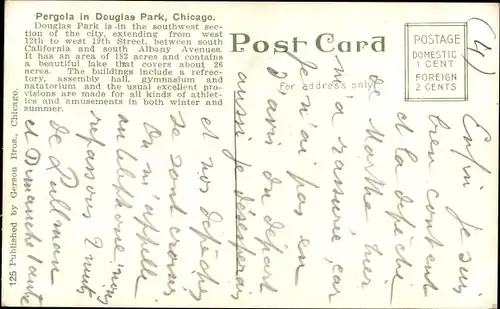 Pergola in Douglas Park, Chicago.
Douglas Park is in the southwest section
of the city, extending from west
12th to west 19th Street, between south
California and south Albany Avenues.
It has an area of 182 acres and contains
a beautiful lake that covers about 26
acres. The buildings include a refectory,
assembly hall, gymnasium and
natatorium and the usual excellent provisions
are made for all kinds of athletics
and amusements in both winter and
summer.
Post Card
For address only
POSTAGE
DOMESTIC
1 CENT
FOREIGN
2 CENTS
125 Published by Gerson Bros., Chicago.
(4)
Enfin je suis
bien content
et la dépêche
de Marthe hier
m'a rassurée, car
je n'ai pas en
d'amis au départ
aussi je désesperais
et nos dépêches
se sont croisées
On m'appelle
au téléphone, nous
repassons 2 nuits
de Pullman
et Dimanche